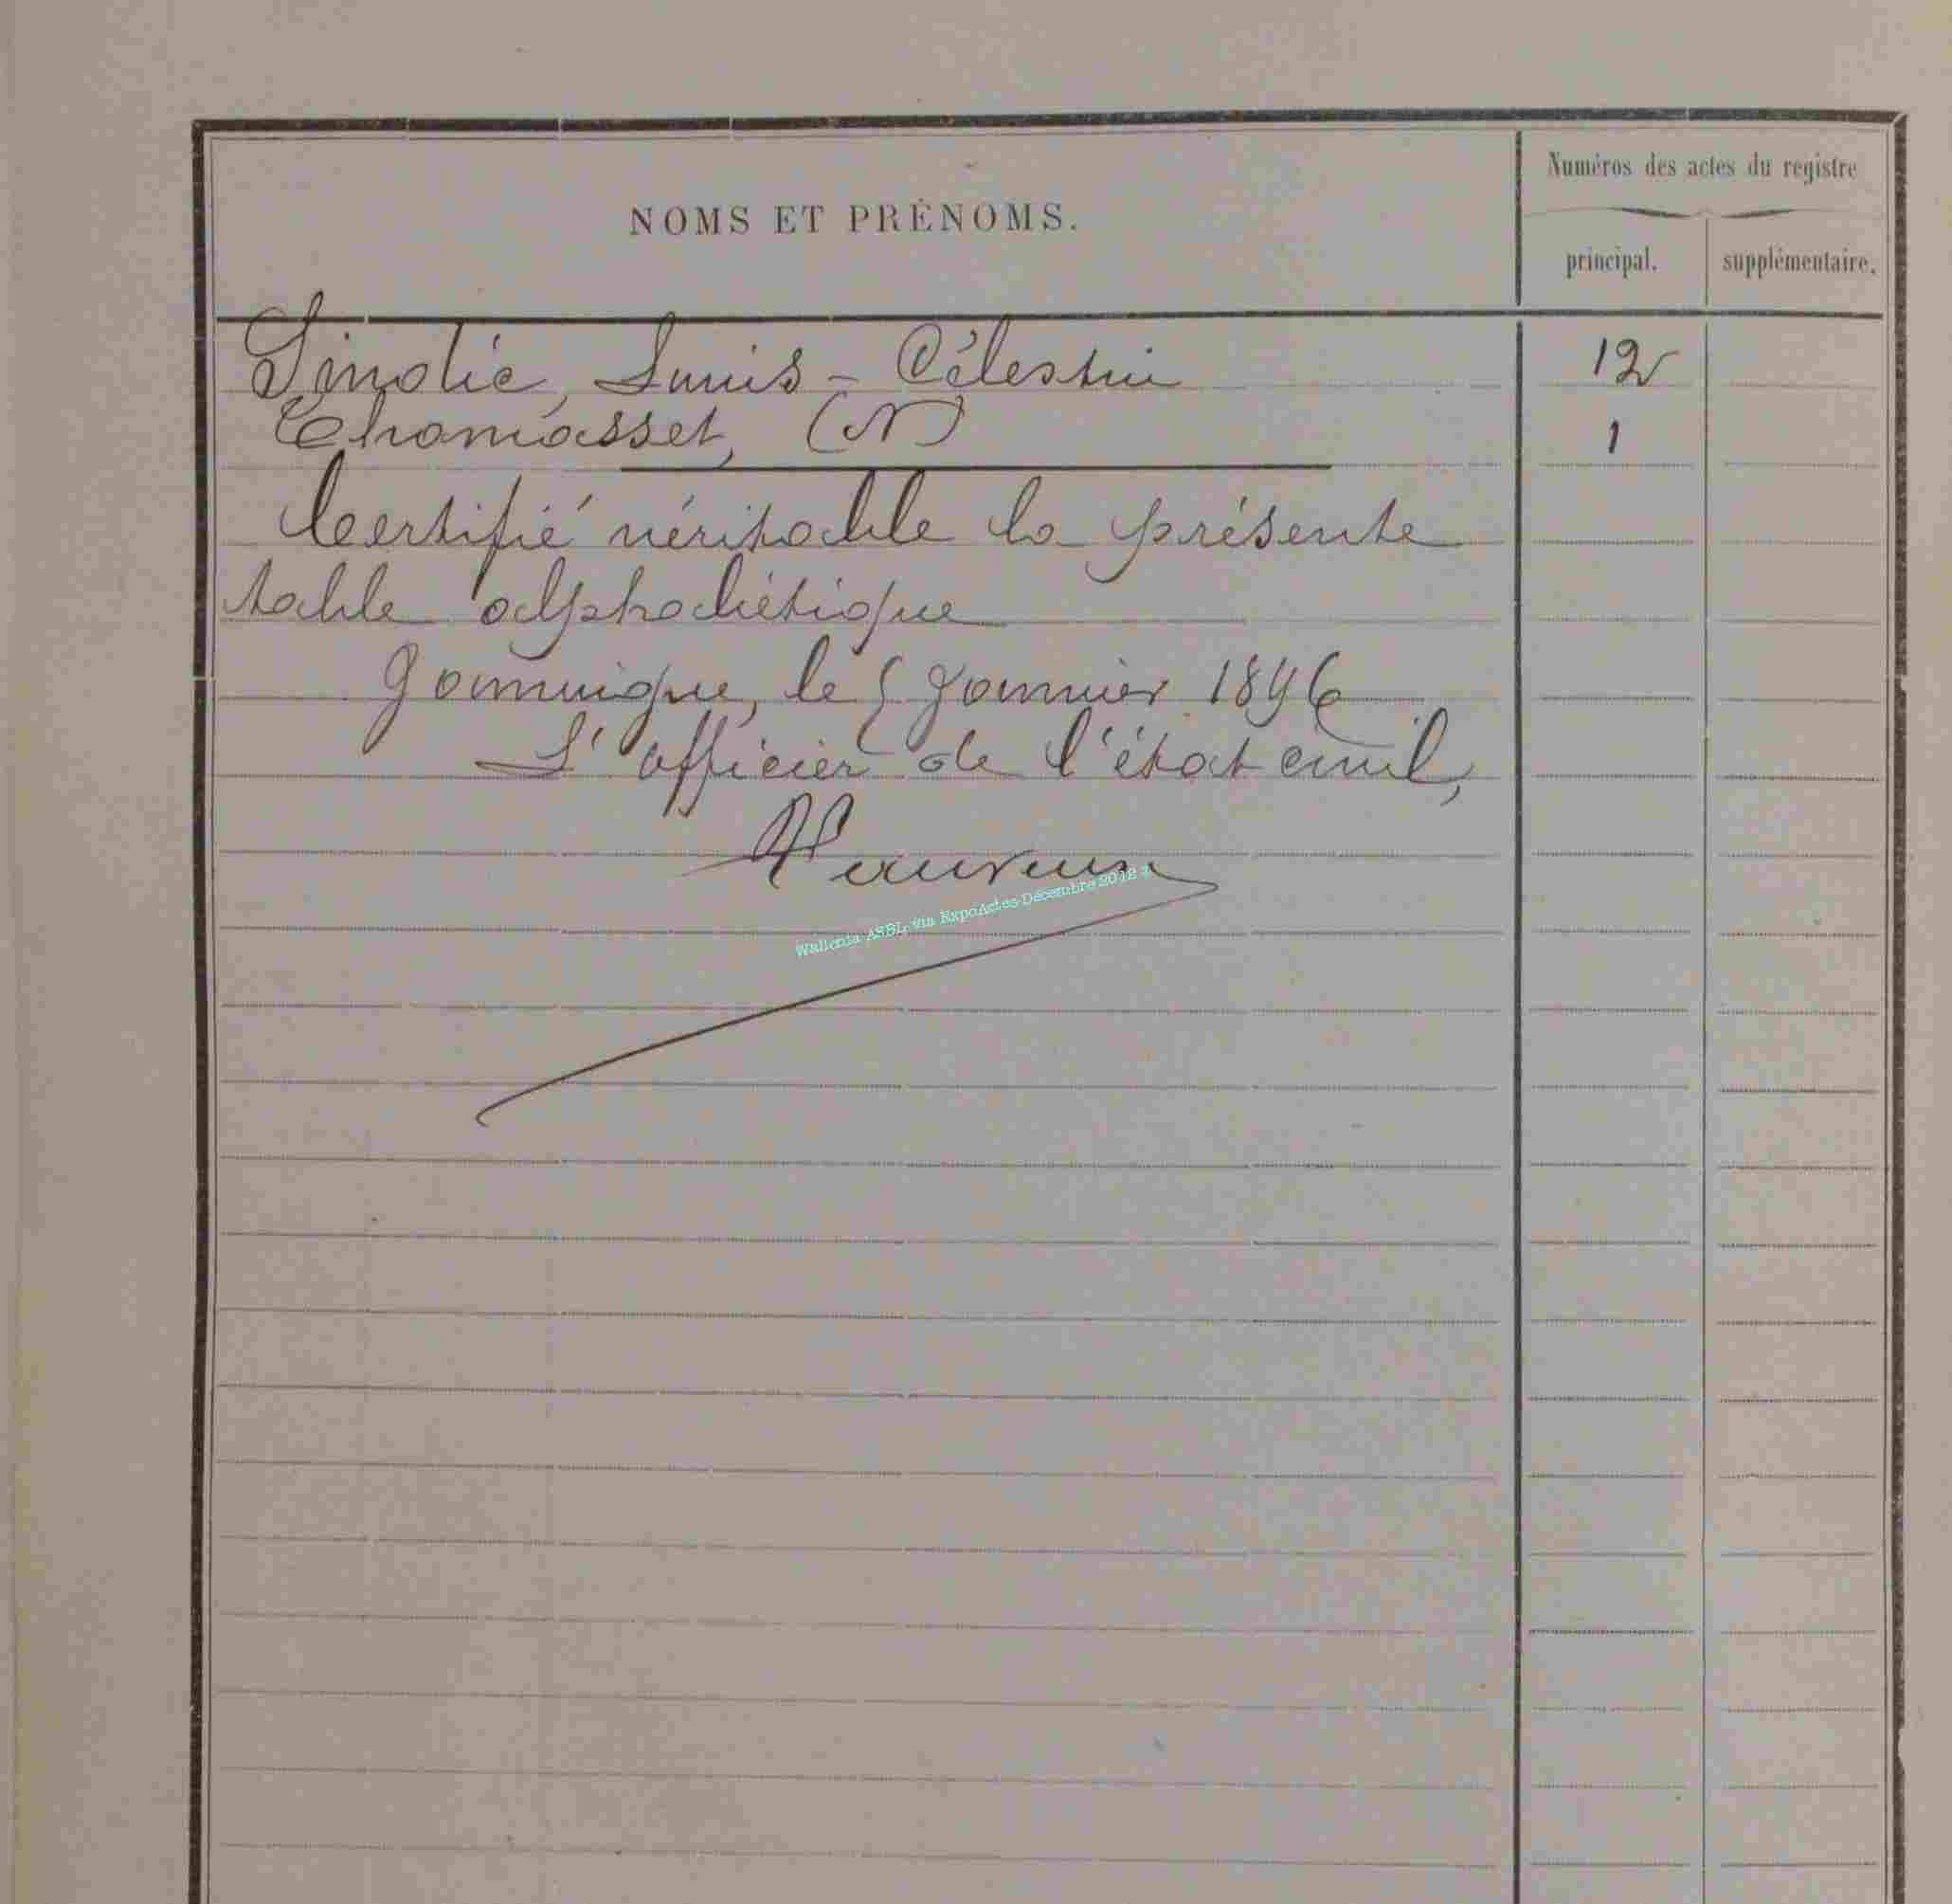 Numéros des actes du registre
NOMS ET PRÉNOMS.
principal. supplémentaire.
Louis - Célestin 12
Thomasset, (N) 1
Certifié véritable la présente
table alphabétique
le 5 Janvier 1896
L'officier de l'état civil,
Wallonia ASBL, via ExpoActes-Décembre 2012